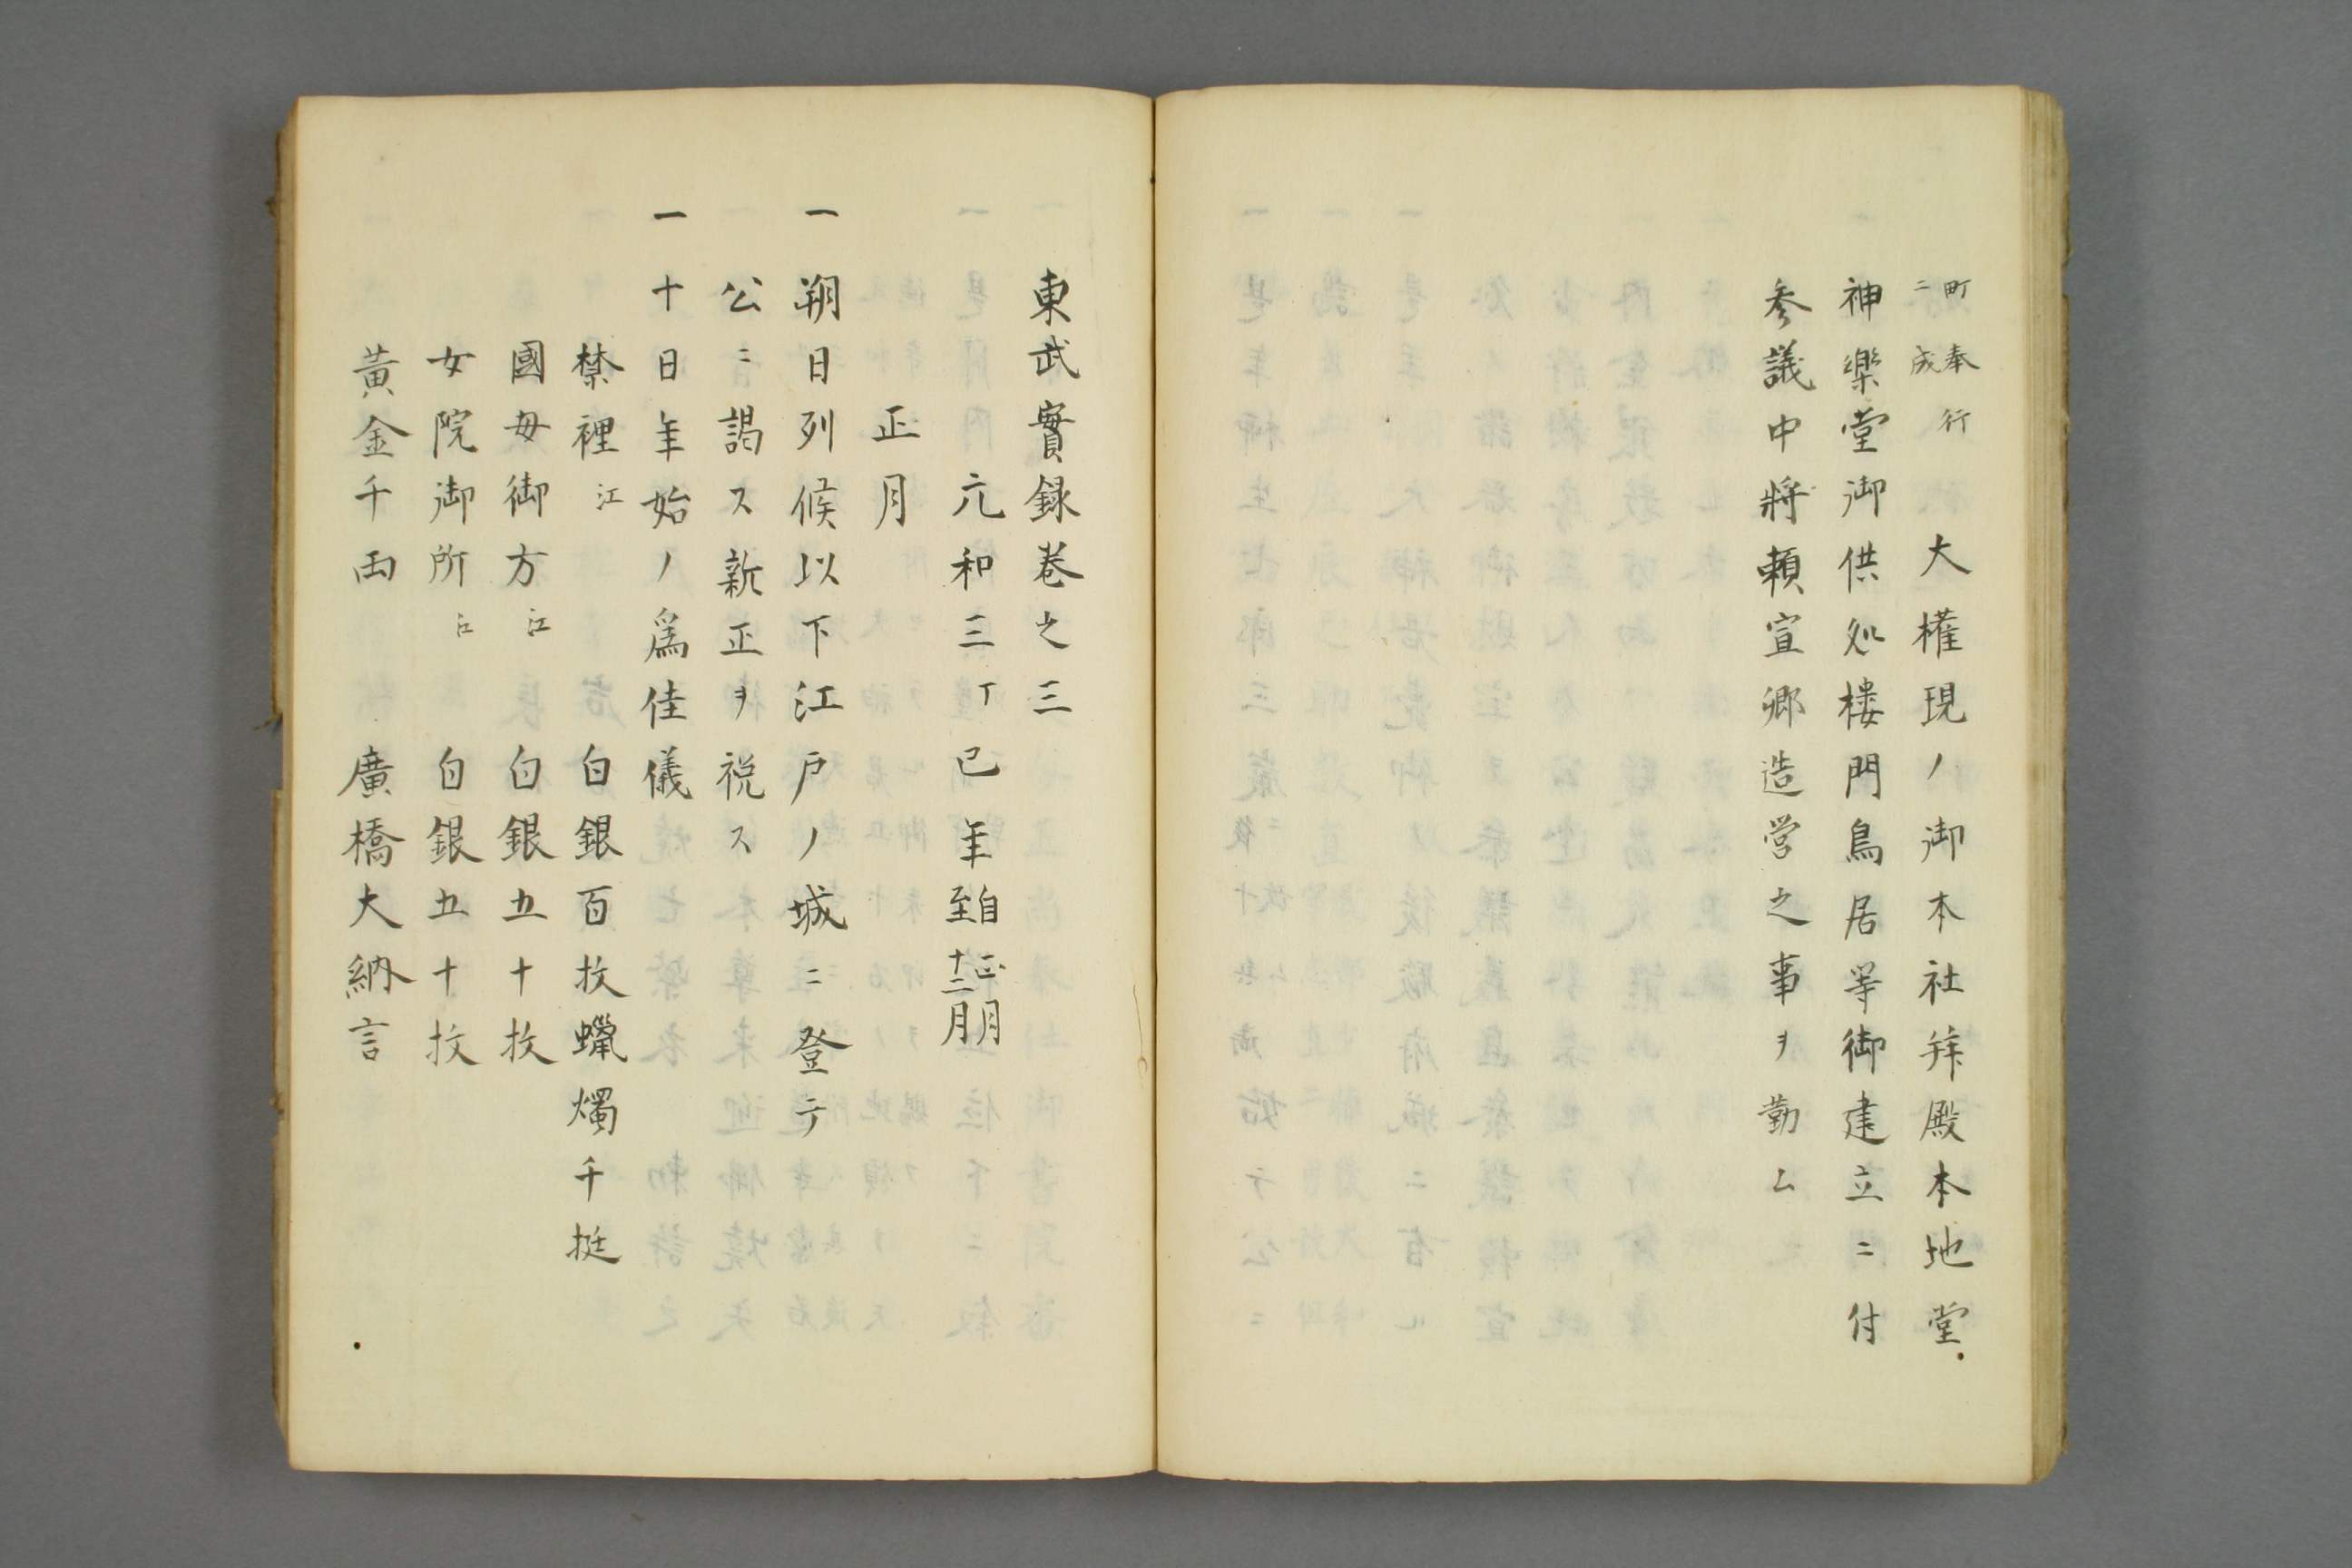 町奉行
ニ成
大權現ノ御本社拜殿本地堂
神樂堂御供処樓門鳥居等御建立ニ付
參議中將賴宣卿造営之事ヲ勤ム
東武實録卷之三
元和三丁巳年自正月至十二月
正月
一朔日列候以下江戸ノ城ニ登テ
公ニ謁ス新正ヲ祝ス
一十日年始ノ爲佳儀
禁裡江 白銀百枚蠟燭千挺
國母御方江 白銀五十枚
女院御所江 白銀五十枚
黃金千両 廣橋大納言